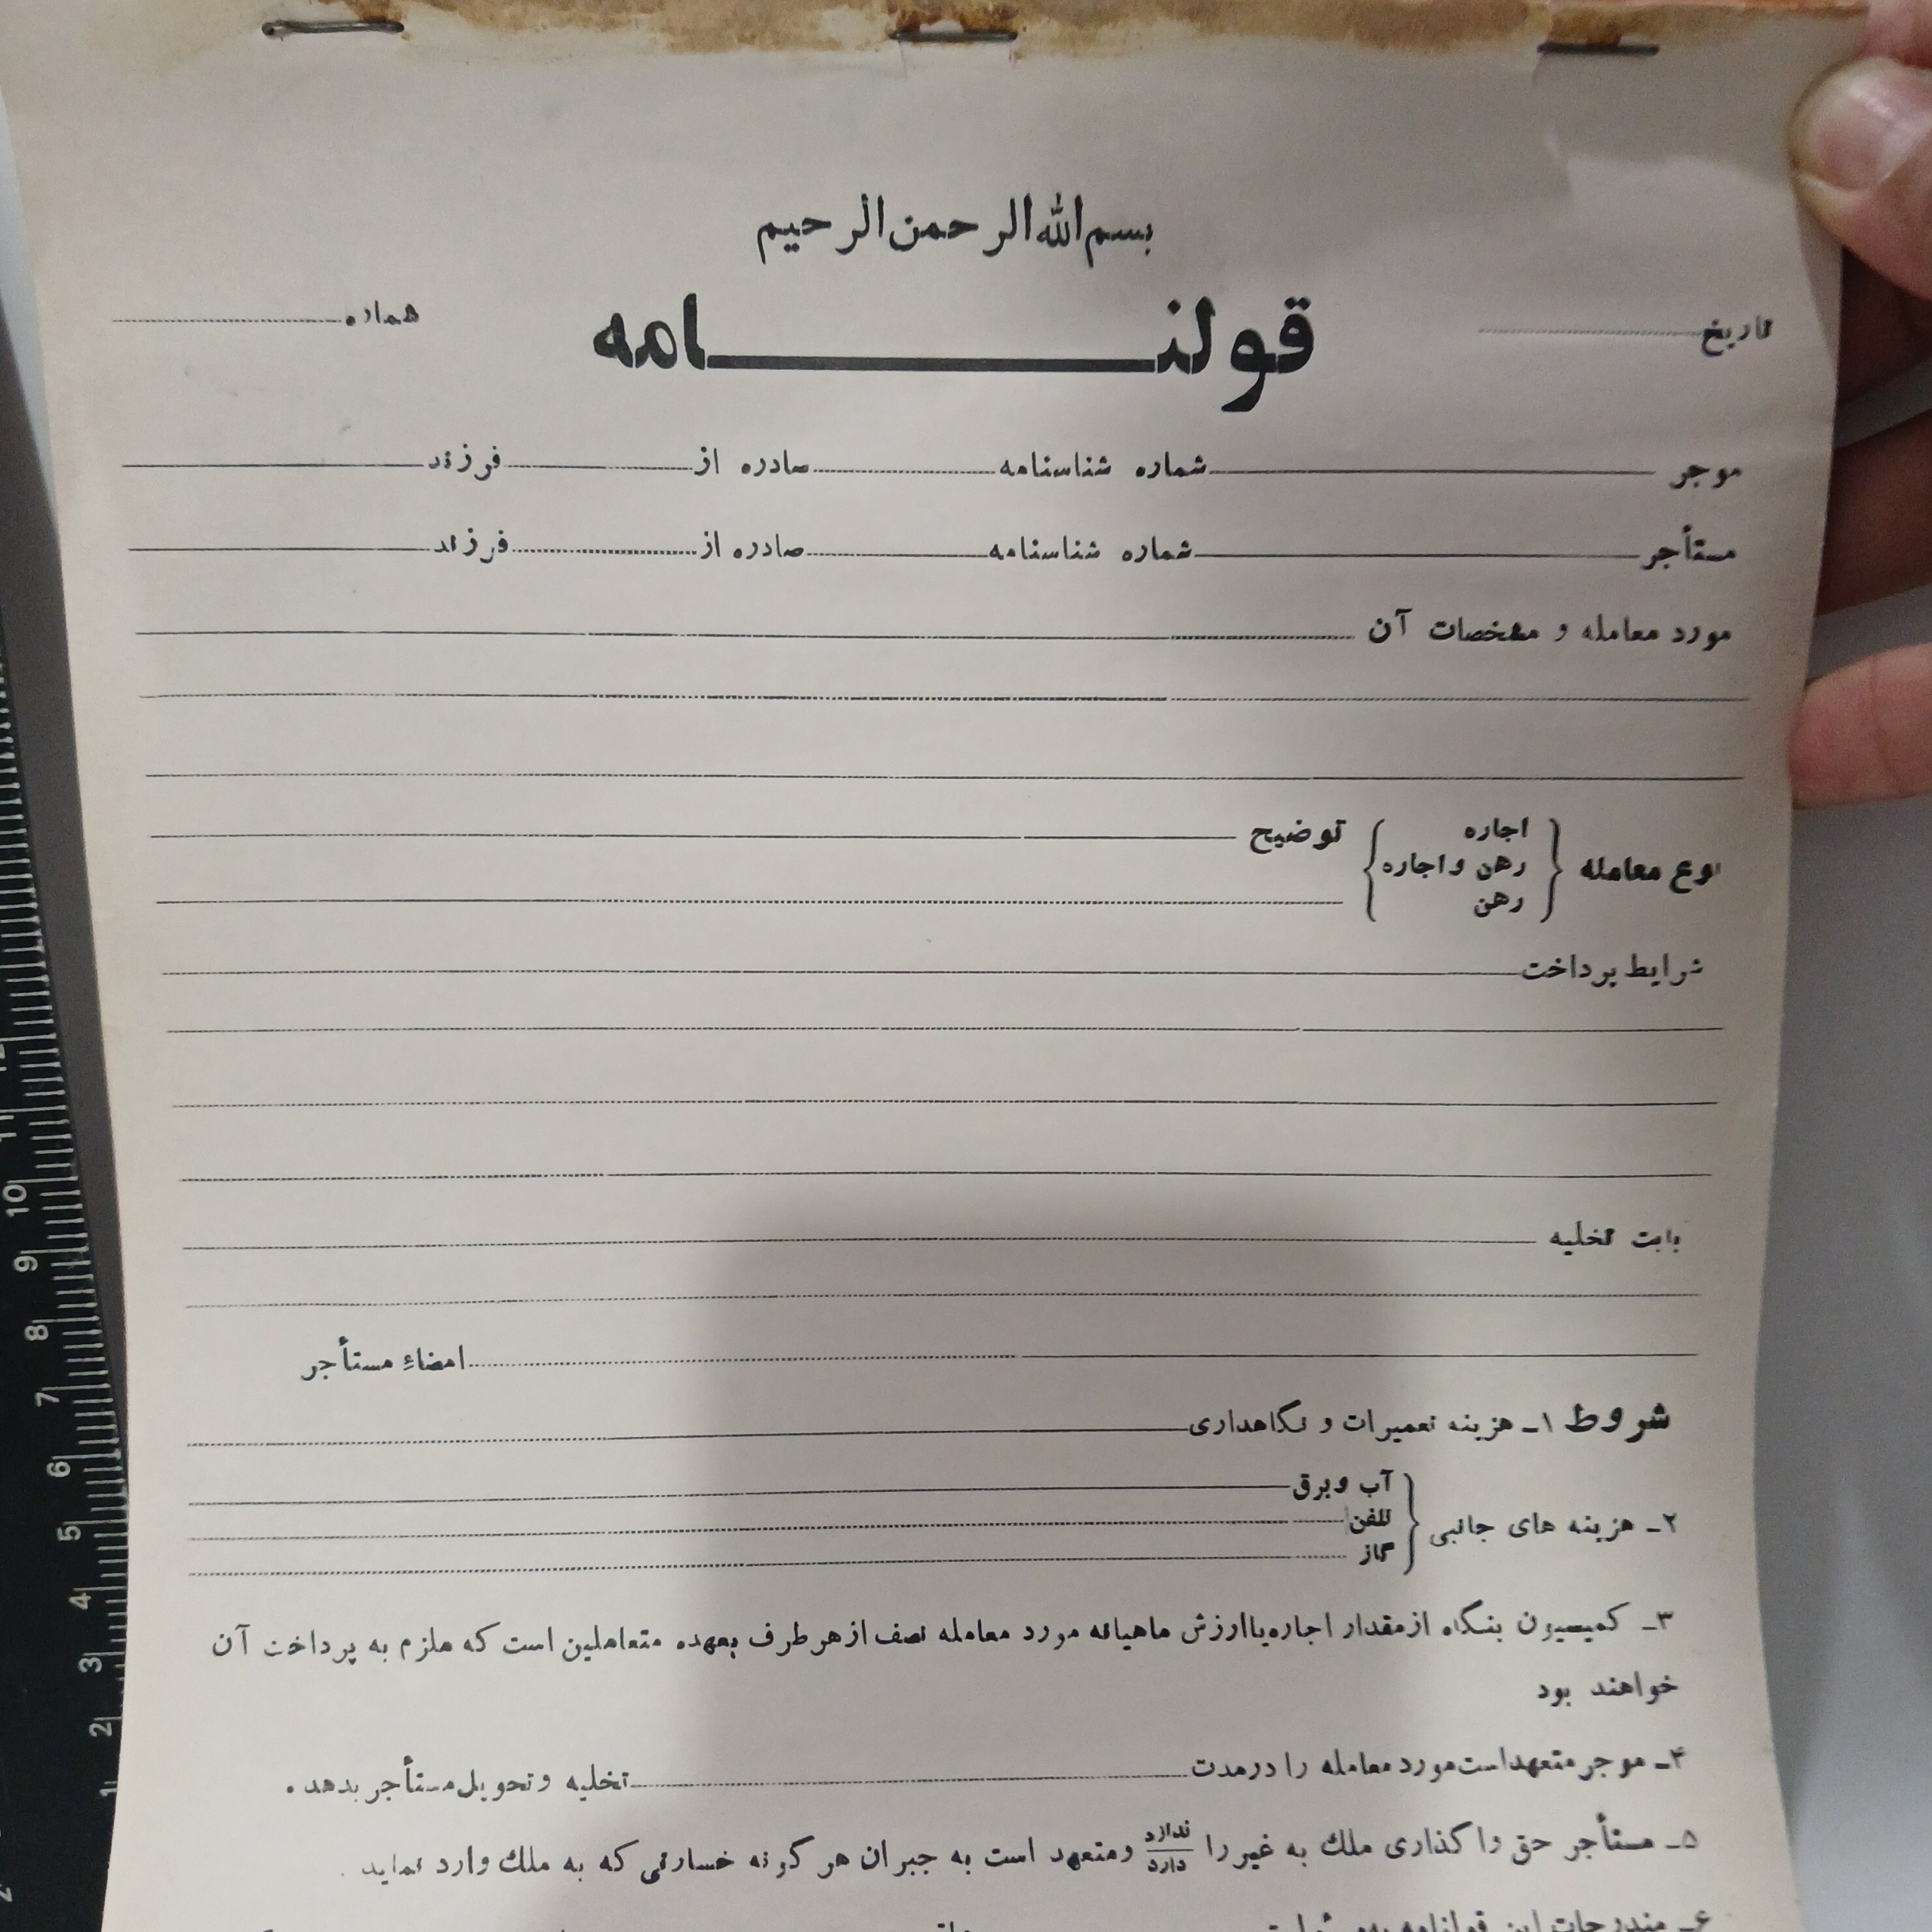 بسم الله الرحمن الرحیم
تاریخ قولنامه شماره
موجر شماره شناسنامه صادره از فرزند
مستأجر شماره شناسنامه صادره از فرزند
مورد معامله و مشخصات آن
نوع معامله { اجاره
رهن و اجاره
رهن } توضیح
شرایط پرداخت
بابت تخلیه
امضاء مستأجر
شروط ۱ـ هزینه تعمیرات و نگاهداری
۲ـ هزینه های جانبی { آب و برق
تلفن
گاز
۳ـ کمیسیون بنگاه از مقدار اجاره یا ارزش ماهیانه مورد معامله نصف از هر طرف بعهده متعاملین است که ملزم به پرداخت آن
خواهند بود
۴ـ موجر متعهد است مورد معامله را در مدت تخلیه و تحویل مستأجر بدهد .
۵ـ مستأجر حق واگذاری ملك به غیر را ندارد / دارد و متعهد است به جبران هر گونه خسارتی که به ملك وارد نماید .
۶ـ مندرجات این قولنامه
12 11 10 9 8 7 6 5 4 3 2 1